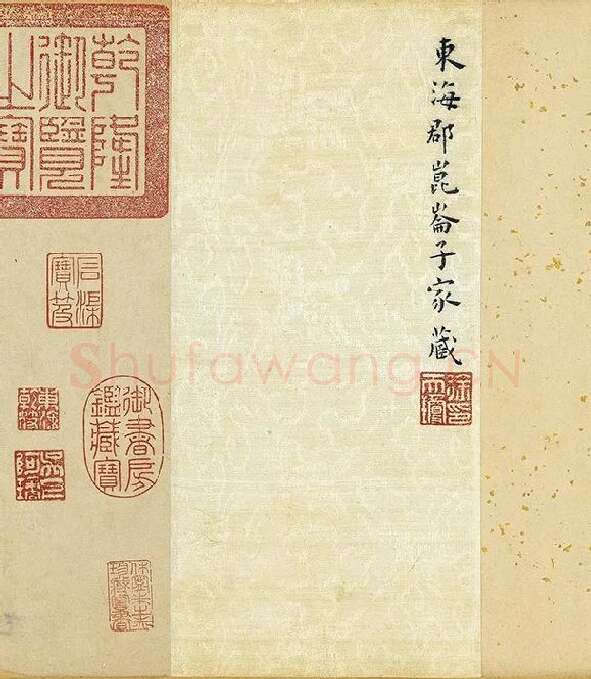 東海郡崑崙子家藏
乾隆
御覽
之寶
石渠
寶笈
御書房
鑑藏寶
Shufawang.CN